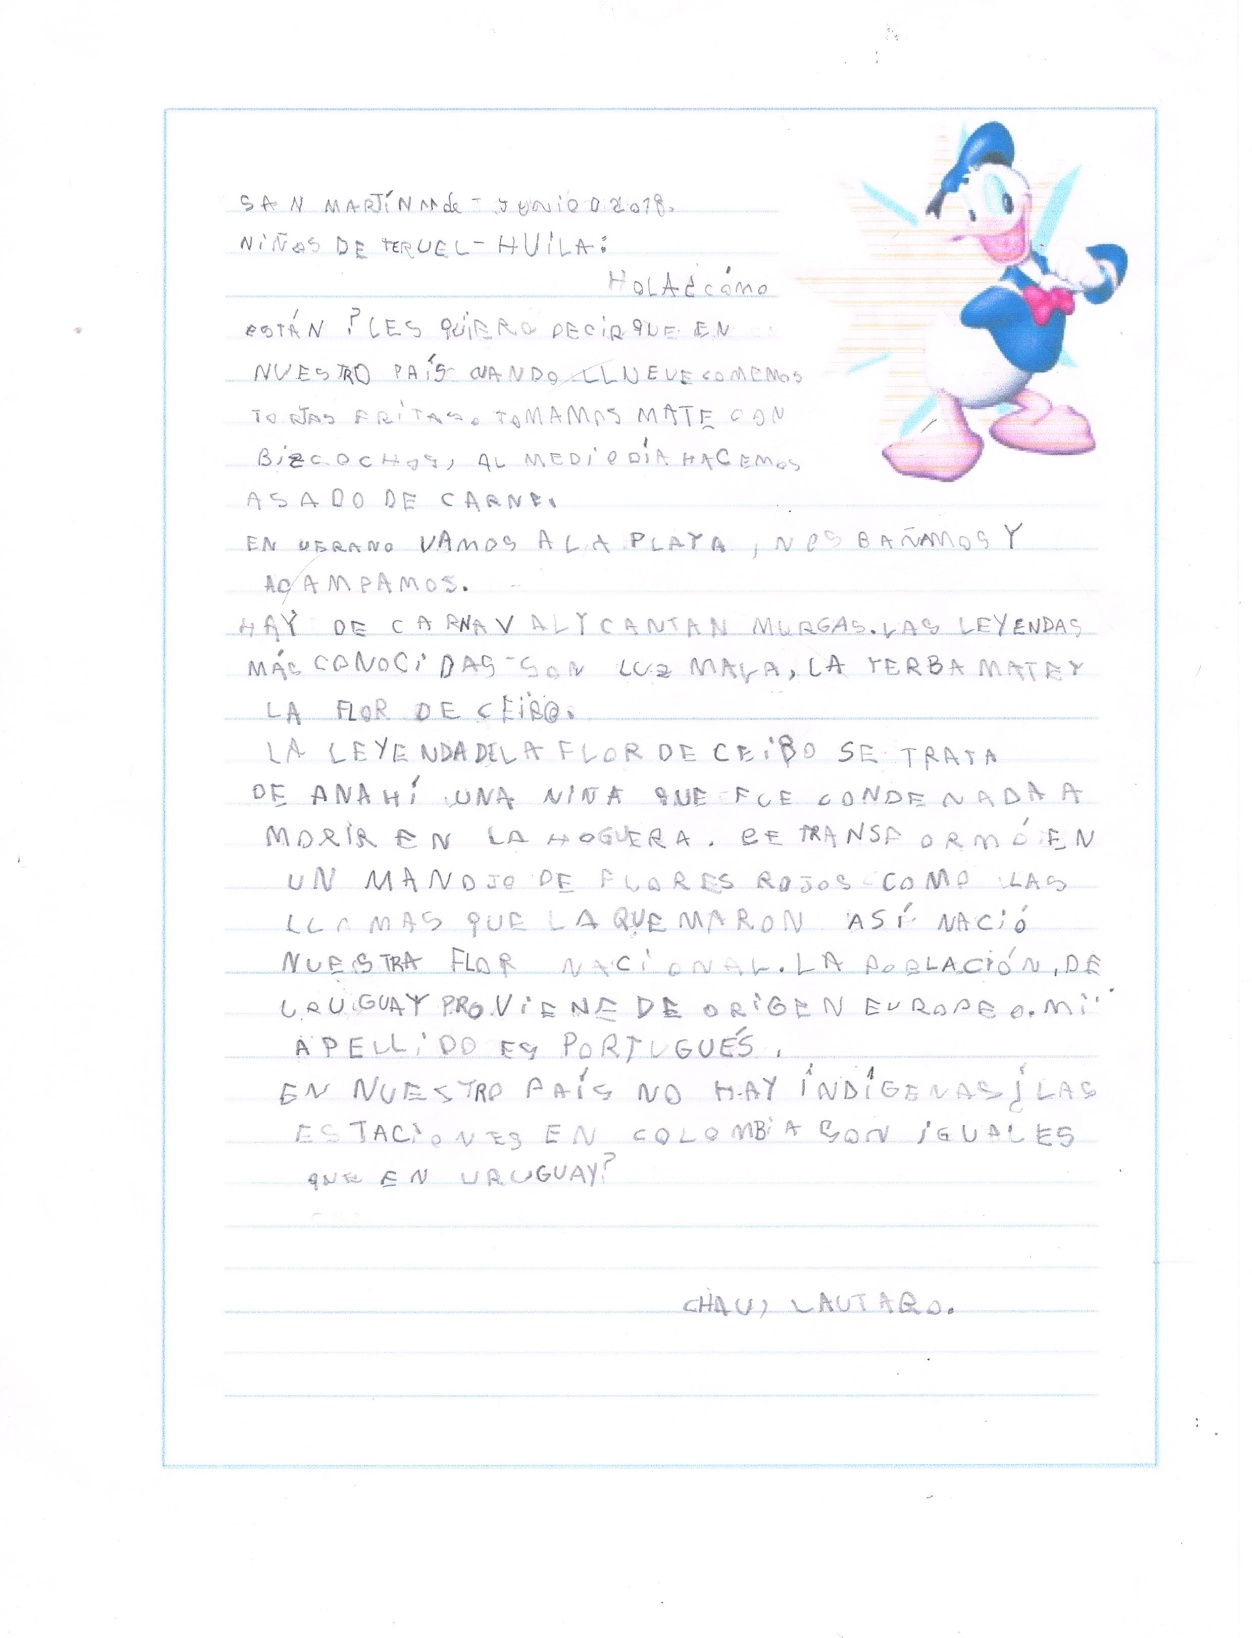 SAN MARTÍN de JUNIO 2018.
NIÑOS DE TERUEL-HUILA:
HOLA ¿CÓMO
ESTÁN? LES QUIERO DECIR QUE EN
NUESTRO PAÍS CUANDO LLNEUE COMEMOS
TORTAS FRITAS o TOMAMOS MATE CON
BIZCOCHOS, AL MEDIODÍA HACEMOS
ASADO DE CARNE.
EN VERANO VAMOS A LA PLAYA, NOS BAÑAMOS Y
ACAMPAMOS.
HAY DE CARNAVAL Y CANTAN MURGAS. LAS LEYENDAS
MÁS CONOCIDAS SON LUZ MALA, LA YERBA MATE Y
LA FLOR DE CEIBO.
LA LEYENDA DE LA FLOR DE CEIBO SE TRATA
DE ANAHÍ UNA NIÑA QUE FUE CONDENADA A
MORIR EN LA HOGUERA. SE TRANSFORMÓ EN
UN MANOJO DE FLORES ROJOS COMO LAS
LLAMAS QUE LA QUEMARON ASÍ NACIÓ
NUESTRA FLOR NACIONAL. LA POBLACIÓN, DE
URUGUAY PROVIENE DE ORIGEN EUROPEO. MI
APELLIDO ES PORTUGUÉS.
EN NUESTRO PAÍS NO HAY INDÍGENAS ¿LAS
ESTACIONES EN COLOMBIA SON IGUALES
QUE EN URUGUAY?
CHAU, LAUTARO.